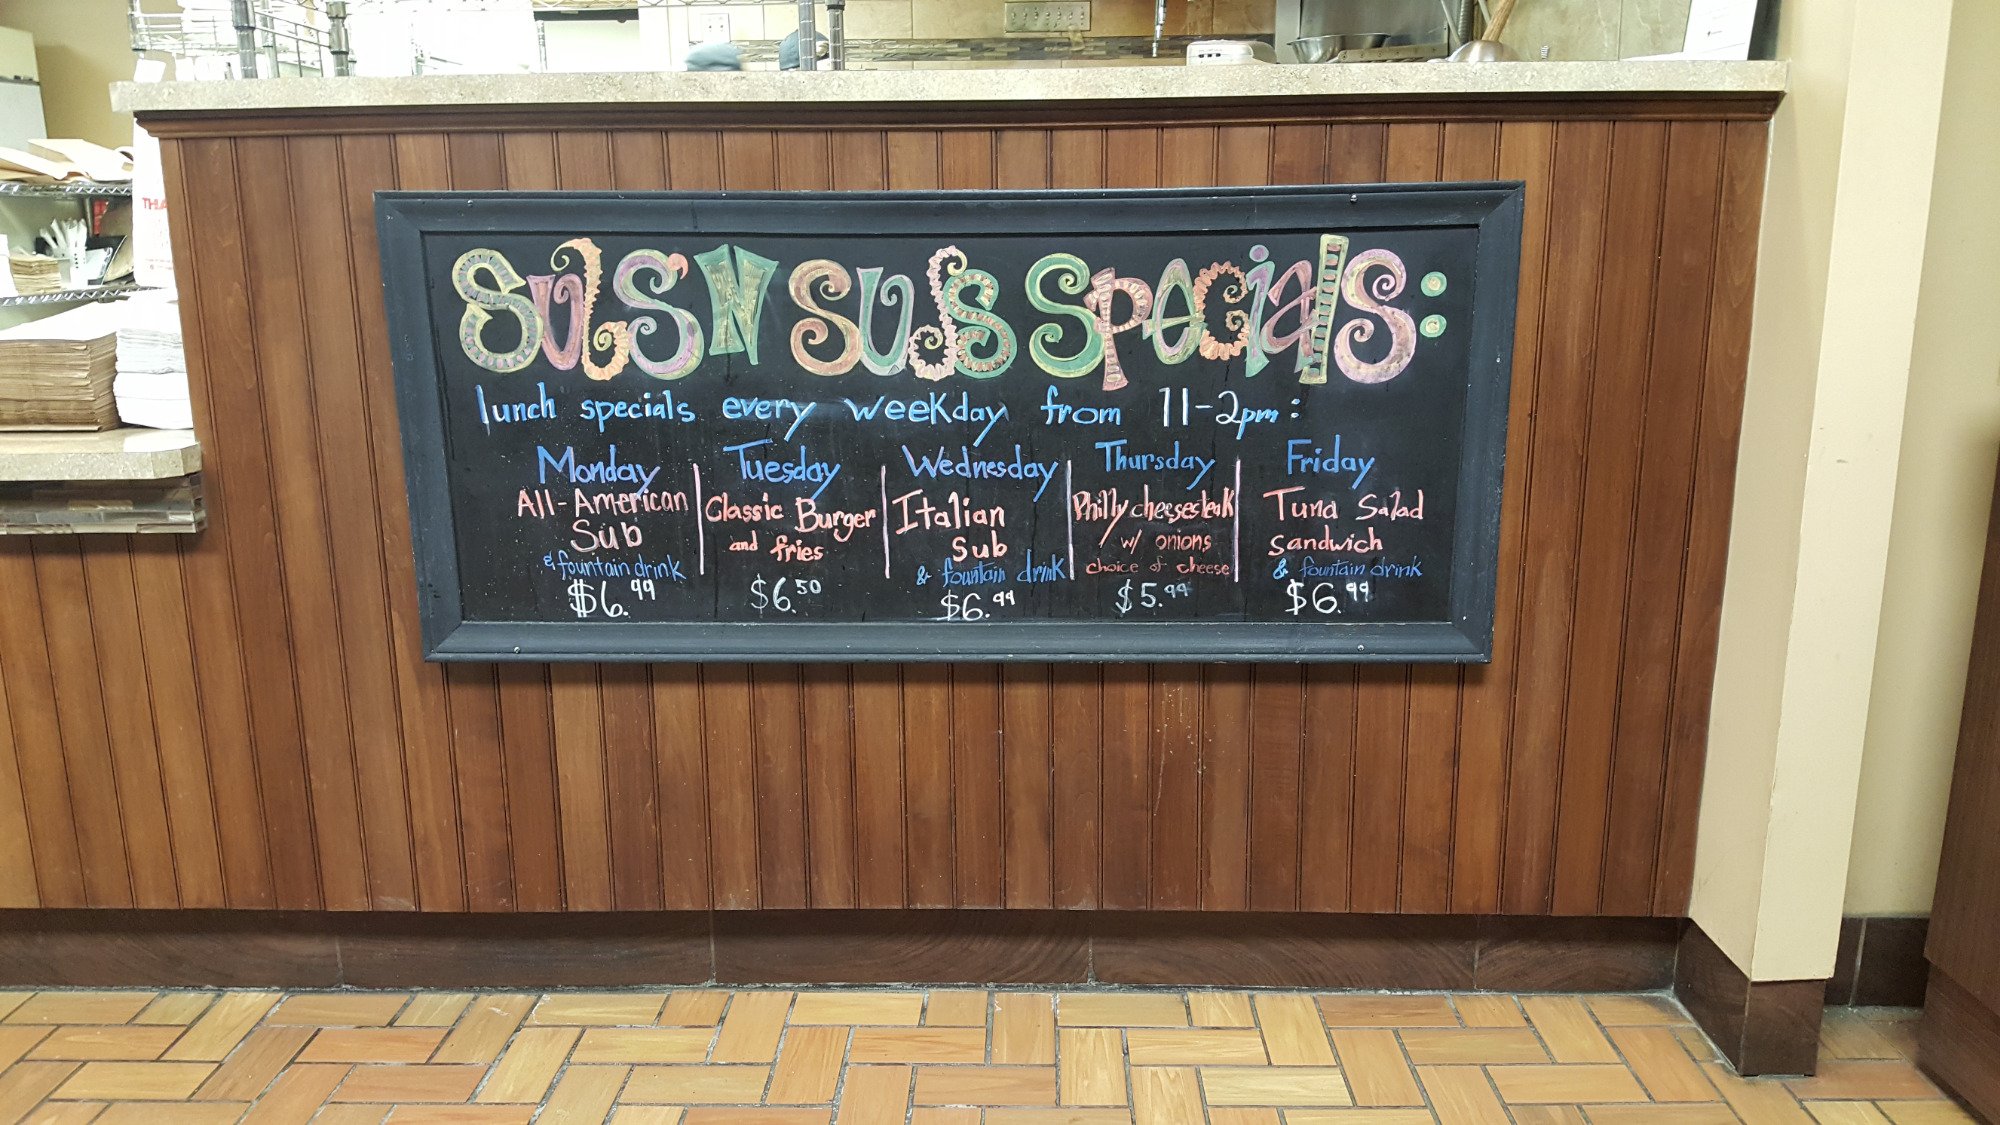 SUDS'N SUDS SPECIALS:
lunch specials every weekday from 11-2pm:
Monday
All-American
Sub
& fountain drink
$6.99
Tuesday
Classic Burger
and fries
$6.50
Wednesday
Italian
Sub
& fountain drink
$6.99
Thursday
Philly cheesesteak
w/ onions
choice of cheese
$5.99
Friday
Tuna Salad
Sandwich
& fountain drink
$6.99